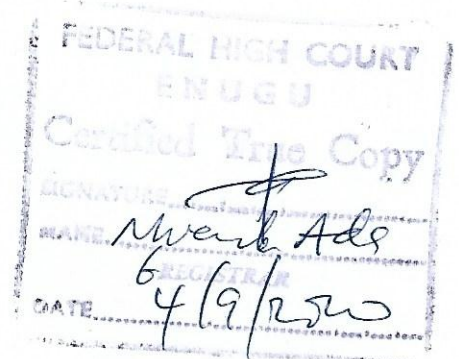 FEDERAL HIGH COURT
ENUGU
Certified True Copy
SIGNATURE
NAME Ade
REGISTRAR
DATE 4/9/2020